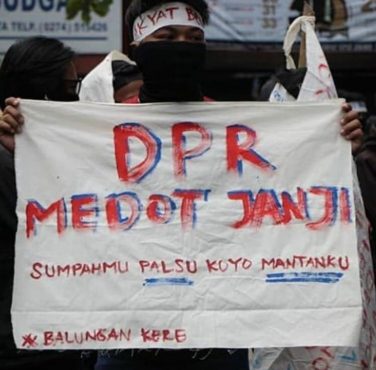 TELP. (0274) 515
KYAT BE
DPR
MEDOT JANJI
SUMPAHMU PALSU KOYO MANTANKU
* BALUNGAN KERE